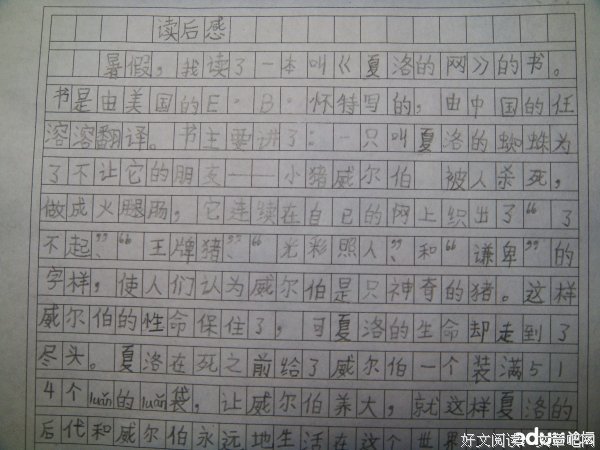 读后感
暑假，我读了一本叫《夏洛的网》的书。
书是由美国的E·B·怀特写的，由中国的任
溶溶翻译。书主要讲了：一只叫夏洛的蜘蛛为
了不让它的朋友——小猪威尔伯 被人杀死，
做成火腿肠，它连续在自己的网上织出了“了
不起”、“王牌猪”、“光彩照人”、和“谦卑”的
字样，使人们认为威尔伯是只神奇的猪。这样
威尔伯的性命保住了，可夏洛的生命却走到了
尽头。夏洛在死之前给了威尔伯一个装满51
4个luǎn的luǎn袋，让威尔伯养大，就这样夏洛的
后代和威尔伯永远地生活在这个世界
好文阅读